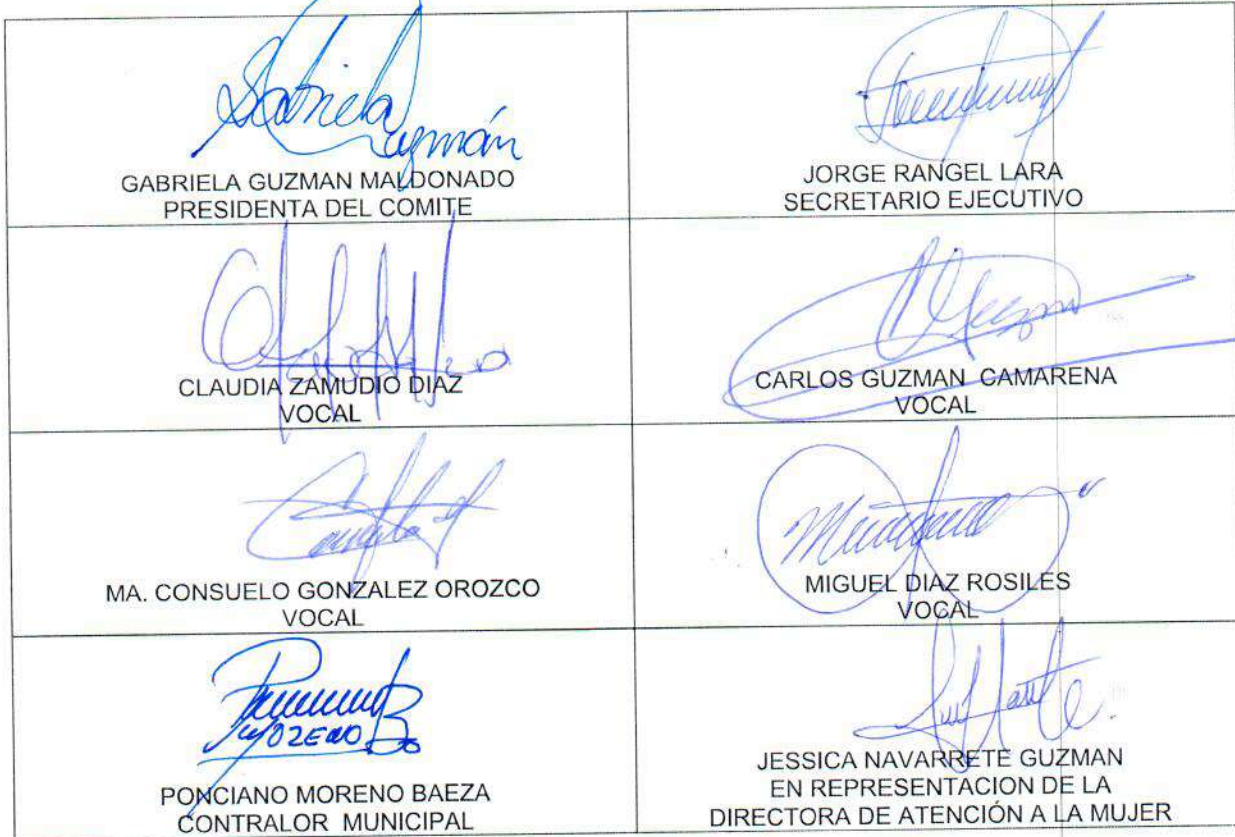 Gabriela
Guzmán
GABRIELA GUZMAN MALDONADO
PRESIDENTA DEL COMITE
JORGE RANGEL LARA
SECRETARIO EJECUTIVO
CLAUDIA ZAMUDIO DIAZ
VOCAL
CARLOS GUZMAN CAMARENA
VOCAL
MA. CONSUELO GONZALEZ OROZCO
VOCAL
MIGUEL DIAZ ROSILES
VOCAL
PONCIANO MORENO BAEZA
CONTRALOR MUNICIPAL
JESSICA NAVARRETE GUZMAN
EN REPRESENTACION DE LA
DIRECTORA DE ATENCIÓN A LA MUJER